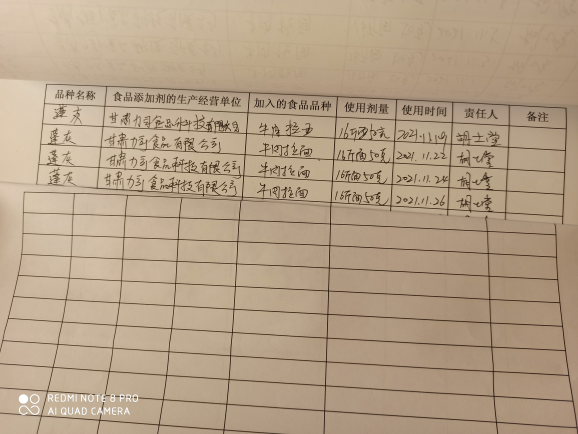 品种名称 食品添加剂的生产经营单位 加入的食品品种 使用剂量 使用时间 责任人 备注
蓬灰 甘肃 食品科技有限公司 牛肉拉面
蓬灰 甘肃 食品有限公司 牛肉拉面 16斤面50克 2021.11.22
蓬灰 甘肃 食品科技有限公司 牛肉拉面 16斤面50克 2021.11.24
蓬灰 甘肃 食品科技有限公司 牛肉拉面 16斤面50克 2021.11.26
REDMI NOTE 8 PRO
AI QUAD CAMERA